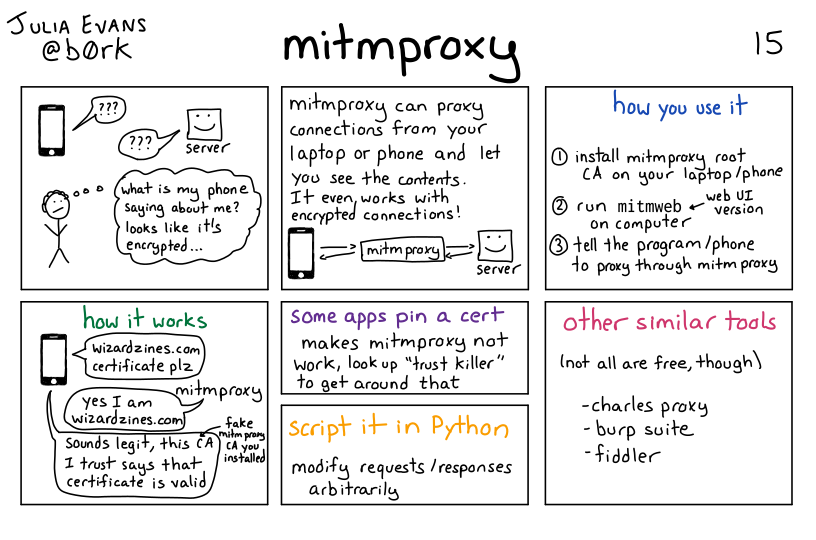 JULIA EVANS
@b0rk
mitmproxy
15
???
???
server
what is my phone
saying about me?
looks like it's
encrypted...
mitmproxy can proxy
connections from your
laptop or phone and let
you see the contents.
It even works with
encrypted connections!
mitmproxy
server
how you use it
① install mitmproxy root
CA on your laptop/phone
② run mitmweb ← web UI
version
on computer
③ tell the program/phone
to proxy through mitmproxy
how it works
wizardzines.com
certificate plz
mitmproxy
yes I am
wizardzines.com
fake
mitmproxy
CA you
installed
Sounds legit, this CA
I trust says that
certificate is valid
some apps pin a cert
makes mitmproxy not
work, look up "trust killer"
to get around that
script it in Python
modify requests/responses
arbitrarily
other similar tools
(not all are free, though)
-charles proxy
-burp suite
-fiddler